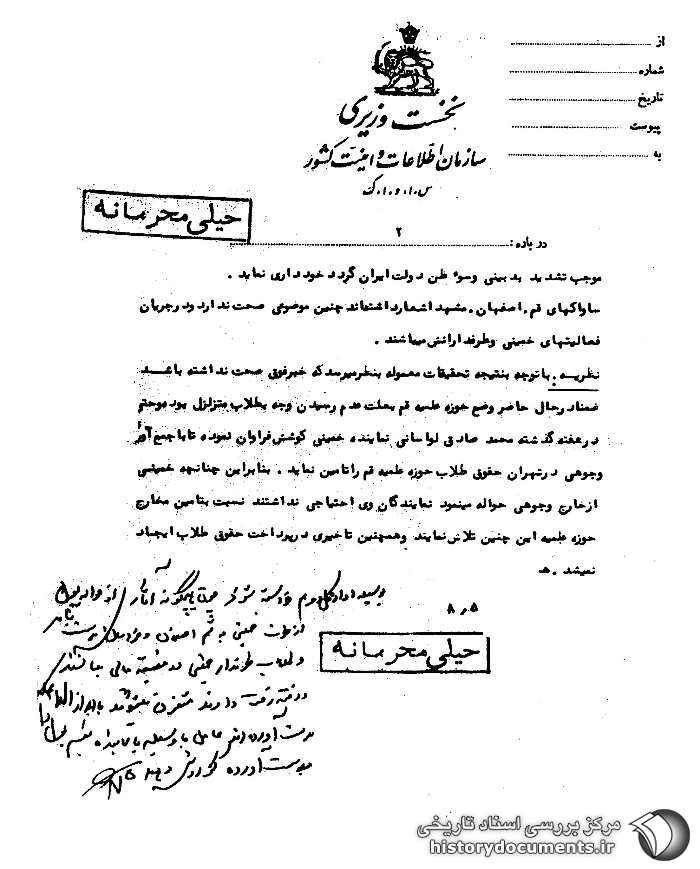 از
شماره
تاریخ
پیوست
به
نخست وزیری
سازمان اطلاعات و امنیت کشور
س.ا.و.ا.ک
خیلی محرمانه
۲
در باره :
موجب تشدید بدبینی وسوء ظن دولت ایران گردد خودداری نماید .
ساواکهای قم . اصفهان . مشهد اشعار داشته‌اند چنین موضوعی صحت ندارد و در جریان
فعالیتهای خمینی وطرفدارانش میباشند .
نظریه . باتوجه بنتیجه تحقیقات معموله بنظر میرسد که خبر فوق صحت نداشته باشد
ضمنا در حال حاضر وضع حوزه علمیه قم بعلت عدم رسیدن وجه بطلاب متزلزل بوده وحتی
در هفته گذشته محمد صادق لواسانی نماینده خمینی کوشش فراوان نموده تا با جمع آوری
وجوهی در تهران حقوق طلاب حوزه علمیه قم را تامین نماید . بنابراین چنانچه خمینی
از خارج وجوهی حواله مینمود نمایندگان وی احتیاجی نداشتند نسبت بتامین مخارج
حوزه علمیه این چنین تلاش نمایند وهمچنین تاخیری در پرداخت حقوق طلاب ایجاد
نمیشد . ه
۸٫۵
خیلی محرمانه
از طرف خمینی به قم اصفهان و خراسان
و طلاب طرفدار خمینی در مضیقه مالی میباشند
مرکز بررسی اسناد تاریخی
historydocuments.ir